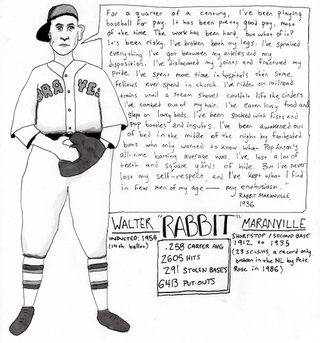 For a quarter of a century, I've been playing
baseball for pay. It has been pretty good pay, most
of the time. The work has been hard, but what of it?
It's been risky. I've broken both my legs. I've sprained
everything I've got between my ankles and my
disposition. I've dislocated my joints and fractured my
pride. I've spent more time in hospitals than some
fellows ever spend in church. I've ridden on railroad
trains until a steam shovel couldn't lift the cinders
I've combed out of my hair. I've eaten lousy food and
slept on lousy beds. I've been socked with fists and
pop bottles and insults. I've been awakened out
of bed in the middle of the night by fatheaded
bums who only wanted to know what Pop Anson's
all-time batting average was. I've lost a lot of
teeth and square yards of hide. But I've never
lost my self-respect, and I've kept what I find
in few men of my age — my enthusiasm."
RABBIT MARANVILLE,
1936
BRAVES
WALTER "RABBIT" MARANVILLE
INDUCTED: 1954
(14th ballot)
.258 CAREER AVG
2605 HITS
291 STOLEN BASES
6413 PUT-OUTS
SHORTSTOP / SECOND BASE
1912 to 1935
(23 seasons, a record only
broken in the NL by Pete
Rose in 1986)